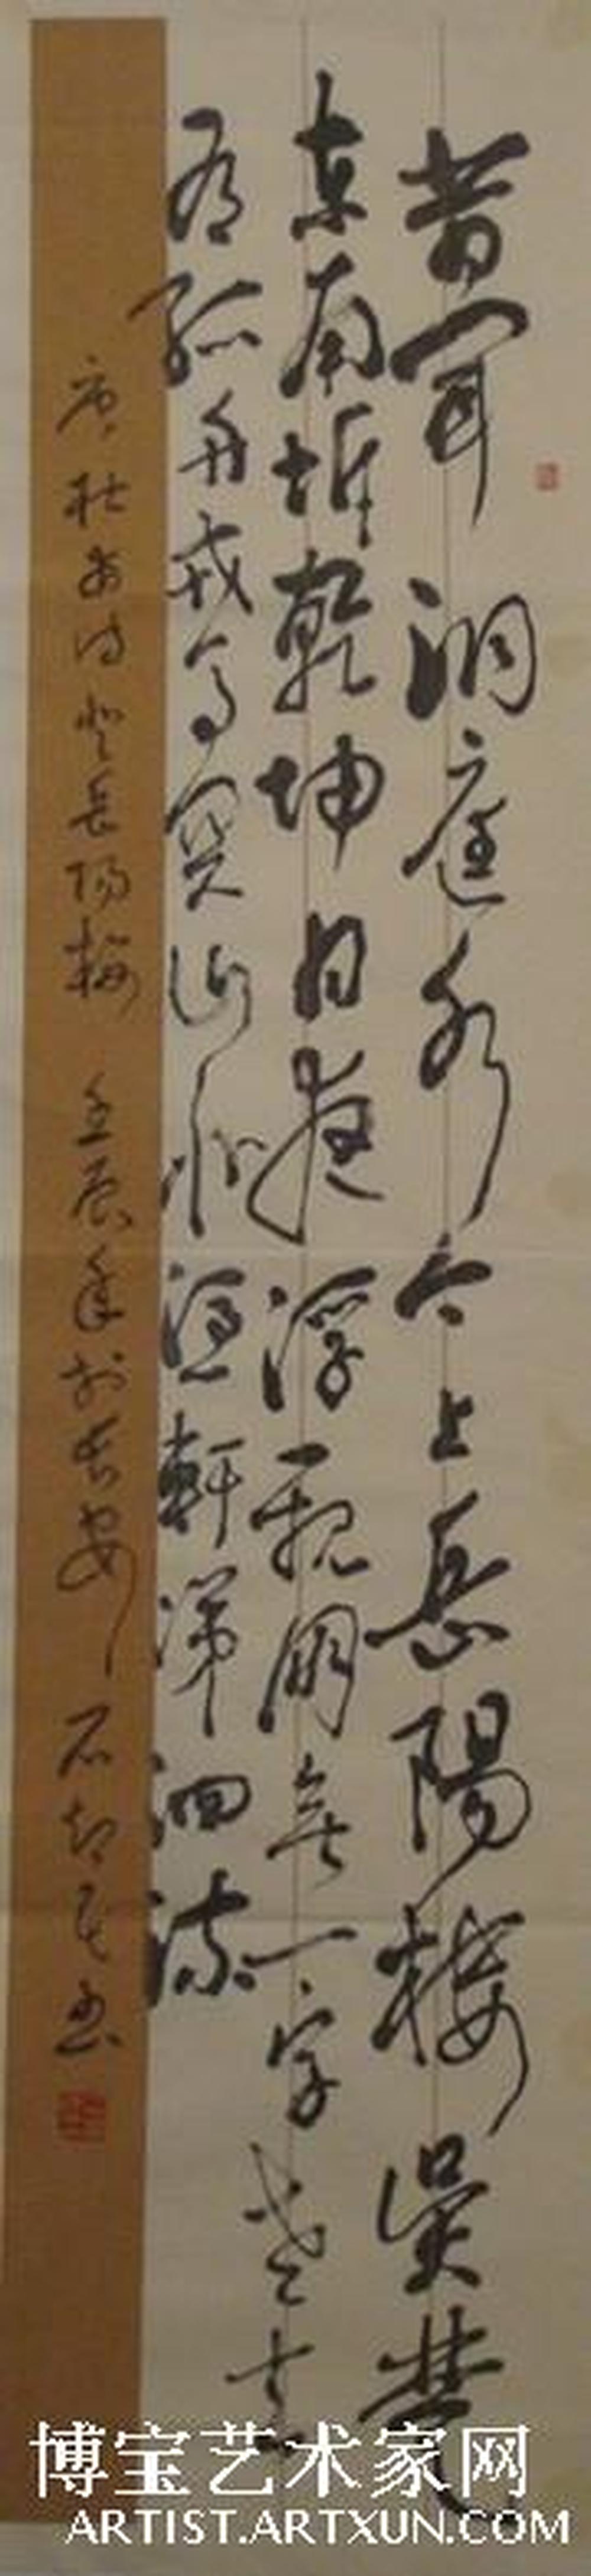 昔聞洞庭水今上岳陽樓吳楚
東南坼乾坤日夜浮親朋無一字老去
有孤舟戎馬關山北憑軒涕泗流
唐杜甫詩登岳陽樓 壬辰年於長安 石
博宝艺术家网
ARTIST.ARTXUN.COM